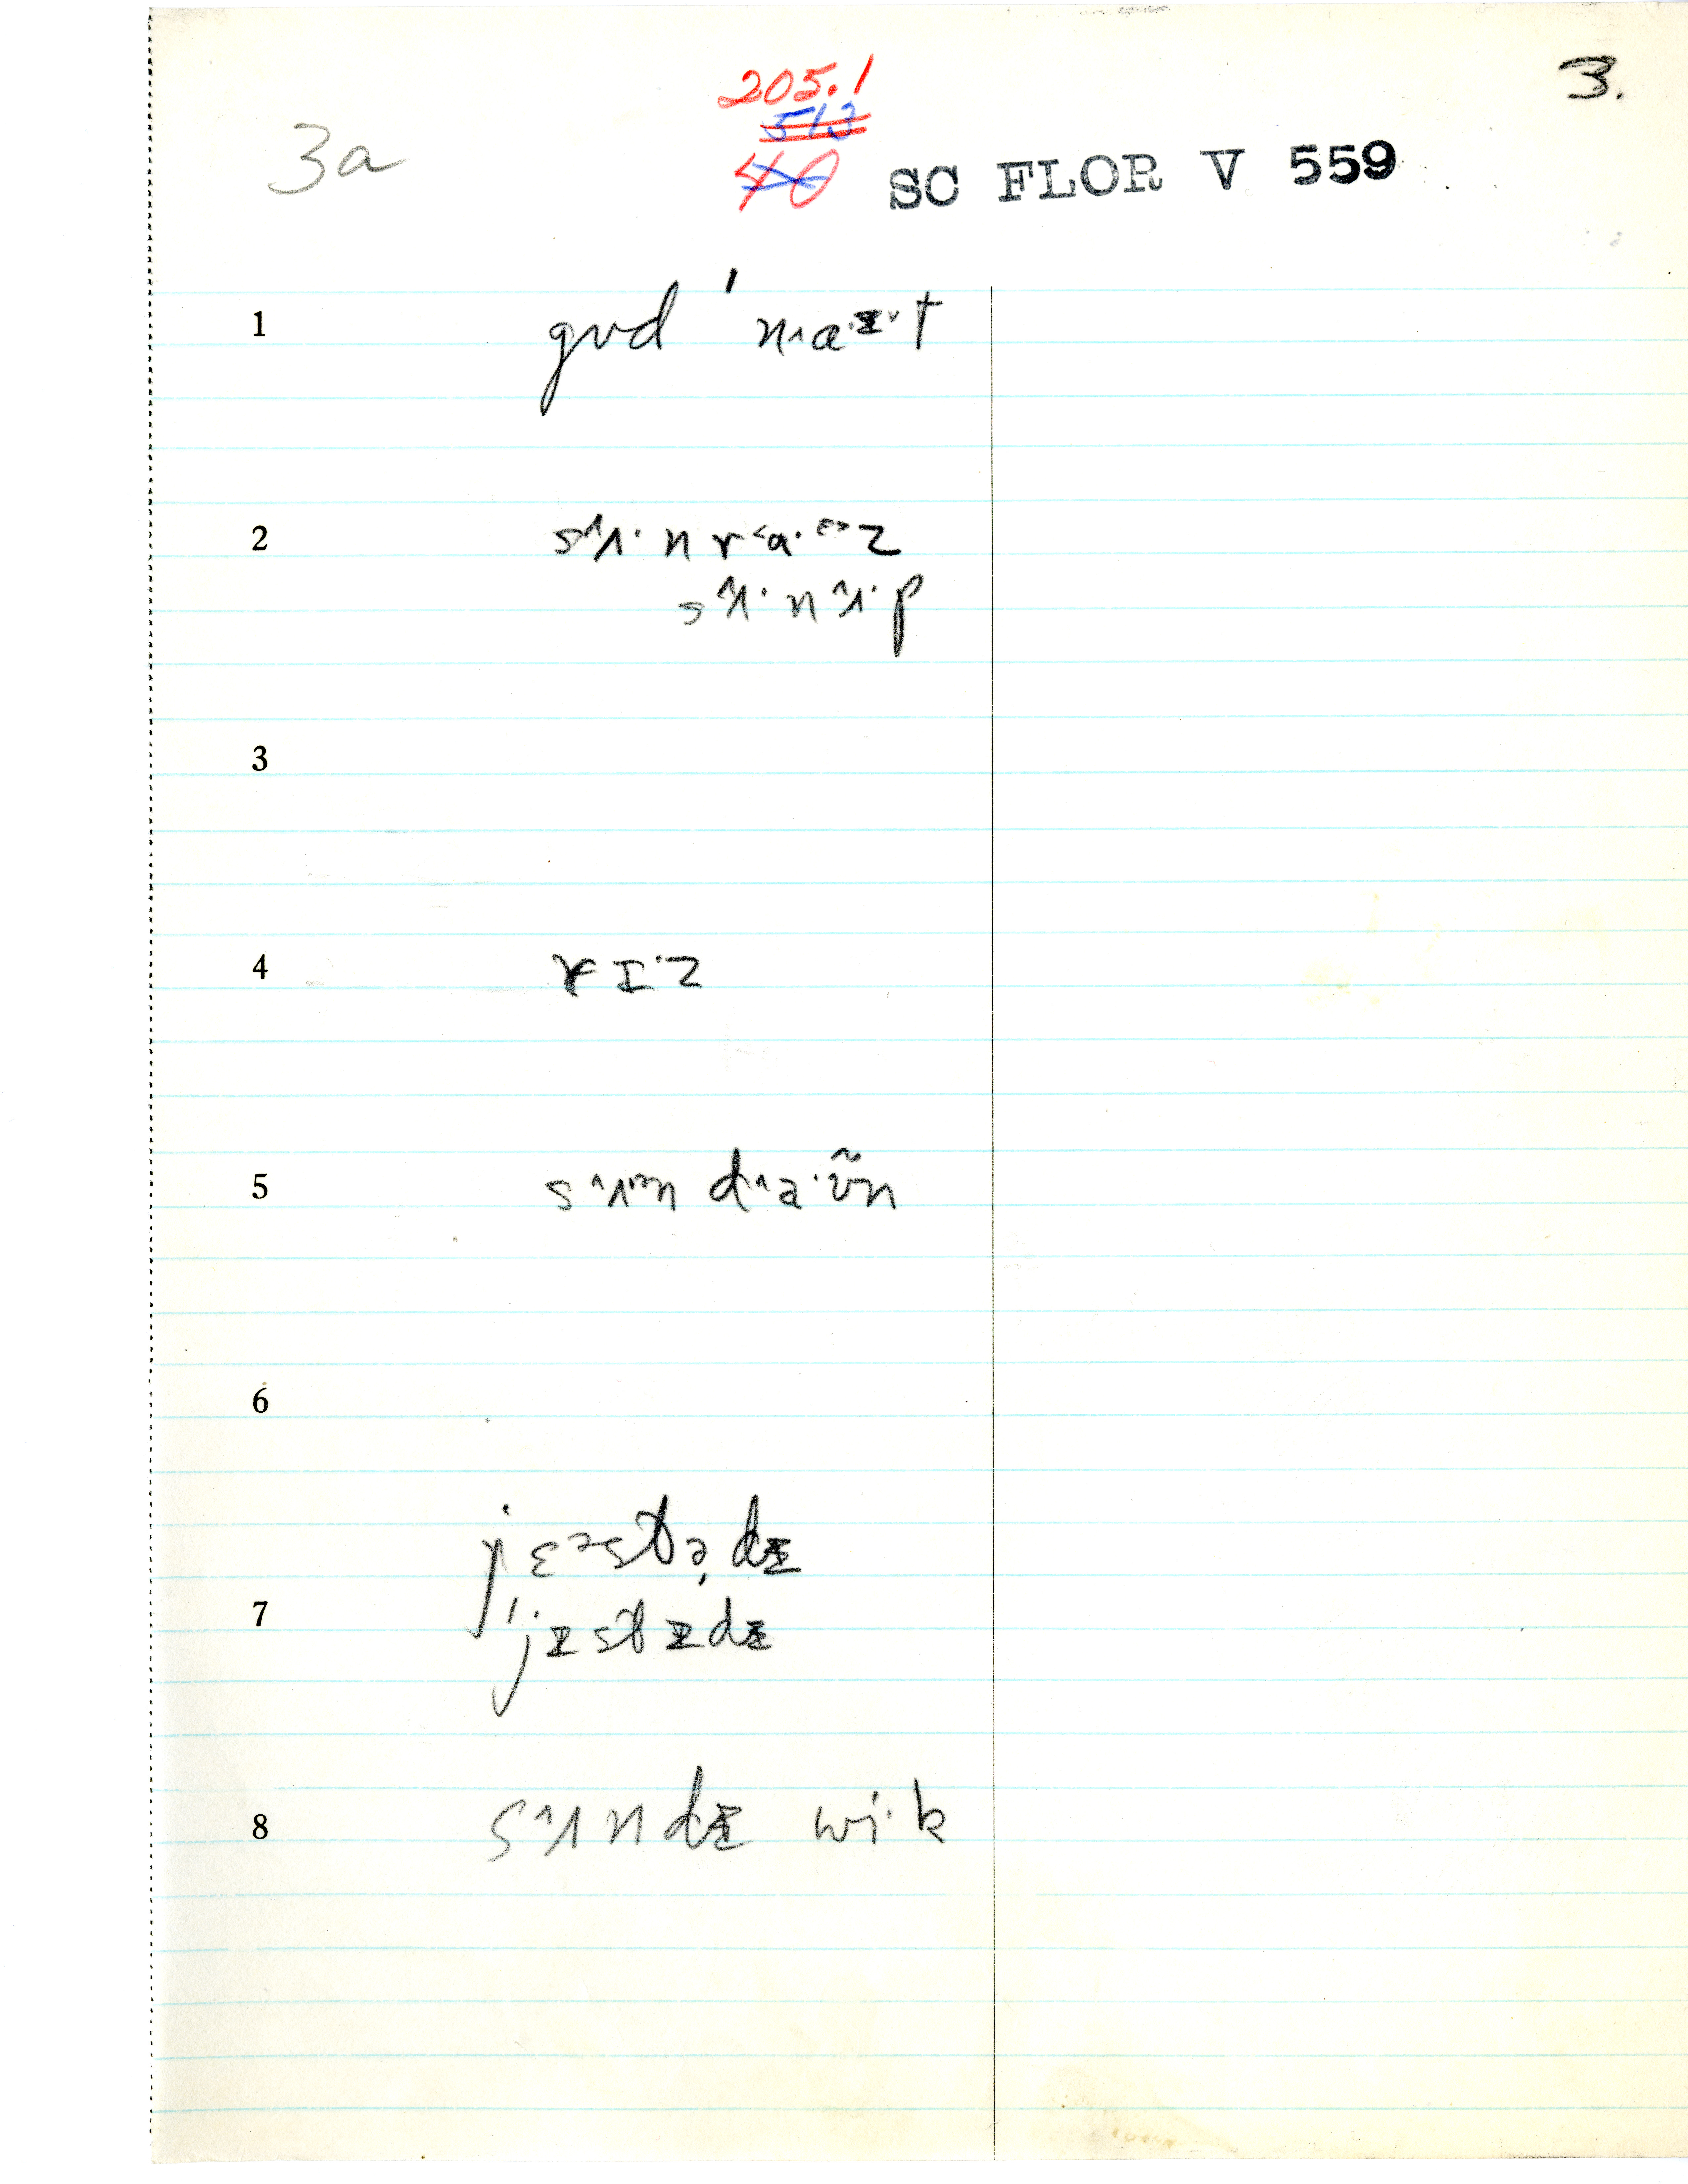 205.1
3.
513
40
3a
SC FLOR V 559
1 gʊd ˈn˄aɪ˅t
2 s˄ʌ·n r˂a·ɛ˃z
s˄ʌ·n ˄ʌ·p
3
4 rɪ·z
5 s˄ʌ·n d˄a·ʊ̃n
6
7 jɛ˃stə̣dɪ
ˈjɪstɪdɪ
8 s˄ʌndɪ wi·k